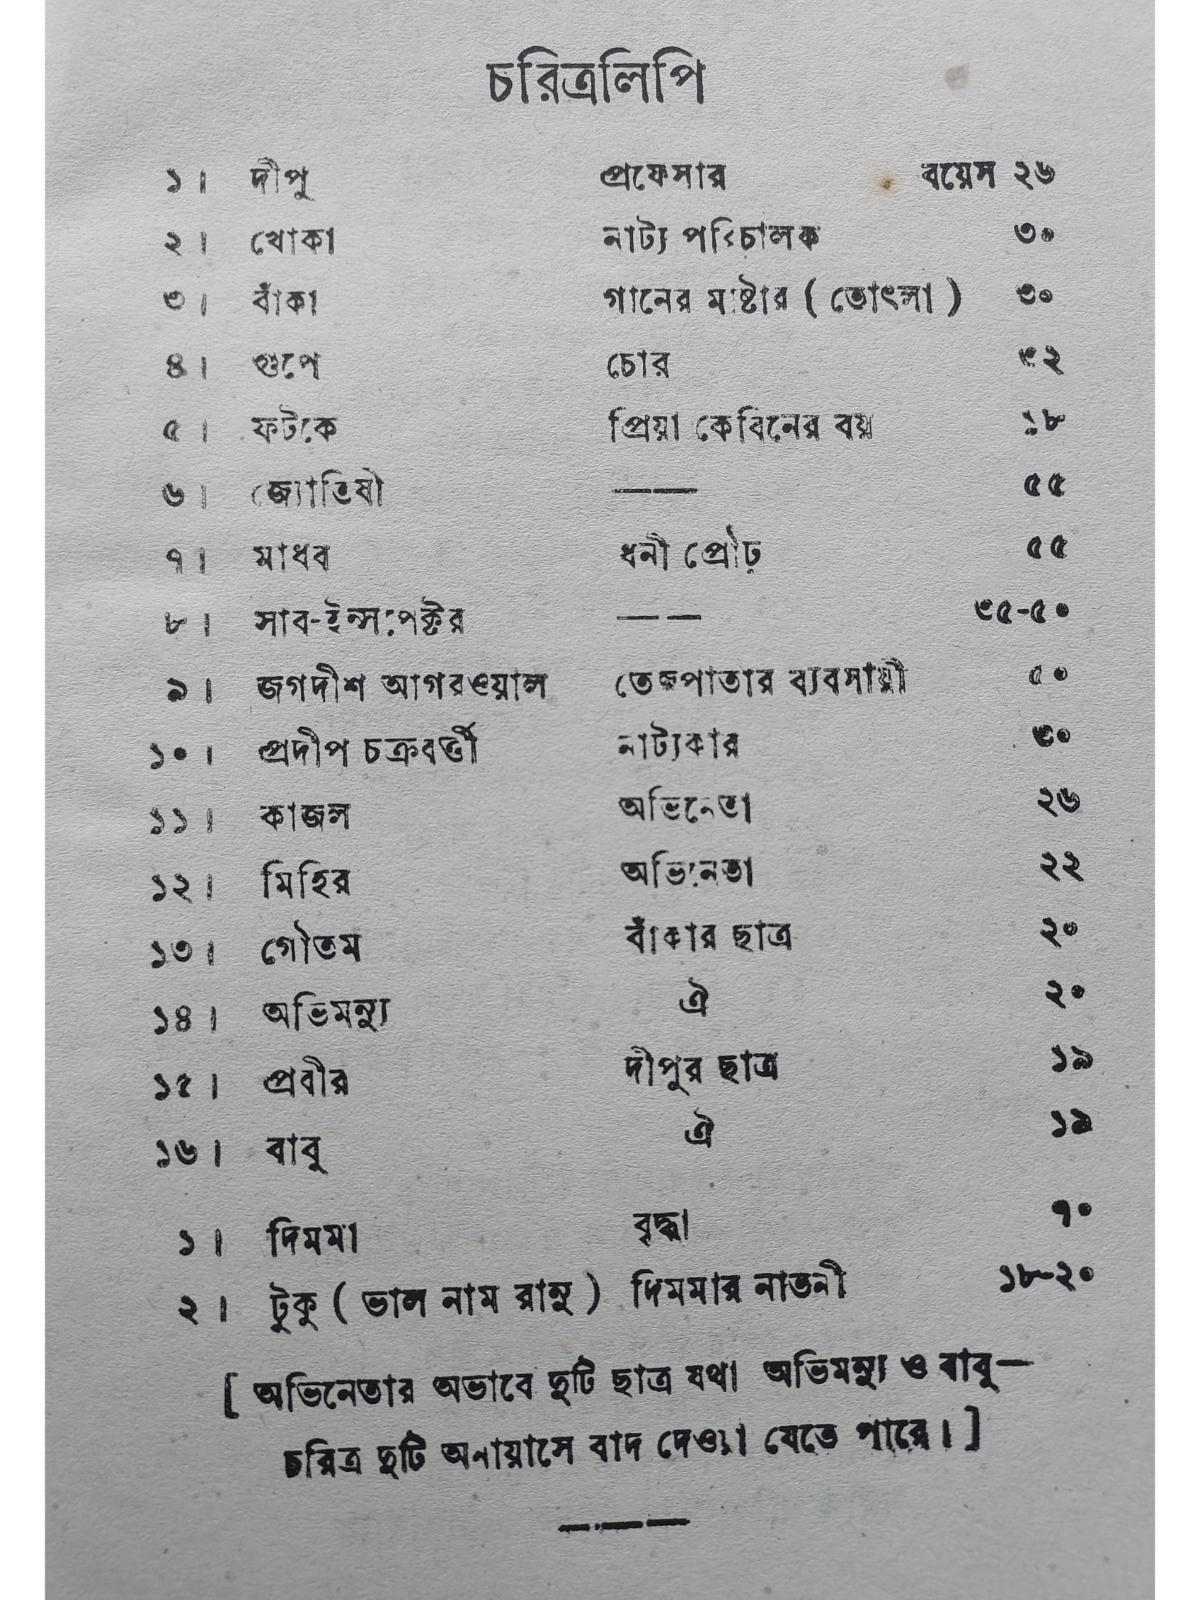 চরিত্রলিপি
১। দীপু প্রফেসার বয়েস ২৬
২। খোকা নাট্য পরিচালক ৩০
৩। বাঁকা গানের মাষ্টার ( তোৎলা ) ৩০
৪। গুপে চোর ৩২
৫। ফটকে প্রিয়া কেবিনের বয় ১৮
৬। জ্যোতিষী —— ৫৫
৭। মাধব ধনী প্রৌঢ় ৫৫
৮। সাব-ইন্সপেক্টর —— ৩৫-৫০
৯। জগদীশ আগরওয়াল তেজপাতার ব্যবসায়ী ৫০
১০। প্রদীপ চক্রবর্ত্তী নাট্যকার ৩০
১১। কাজল অভিনেতা ২৬
১২। মিহির অভিনেতা ২২
১৩। গৌতম বাঁকার ছাত্র ২০
১৪। অভিমন্যু ঐ ২০
১৫। প্রবীর দীপুর ছাত্র ১৯
১৬। বাবু ঐ ১৯
১। দিমমা বৃদ্ধা ৭০
২। টুকু ( ভাল নাম রানু ) দিমমার নাতনী ১৮-২০
[ অভিনেতার অভাবে দুটি ছাত্র যথা অভিমন্যু ও বাবু—
চরিত্র দুটি অনায়াসে বাদ দেওয়া যেতে পারে। ]